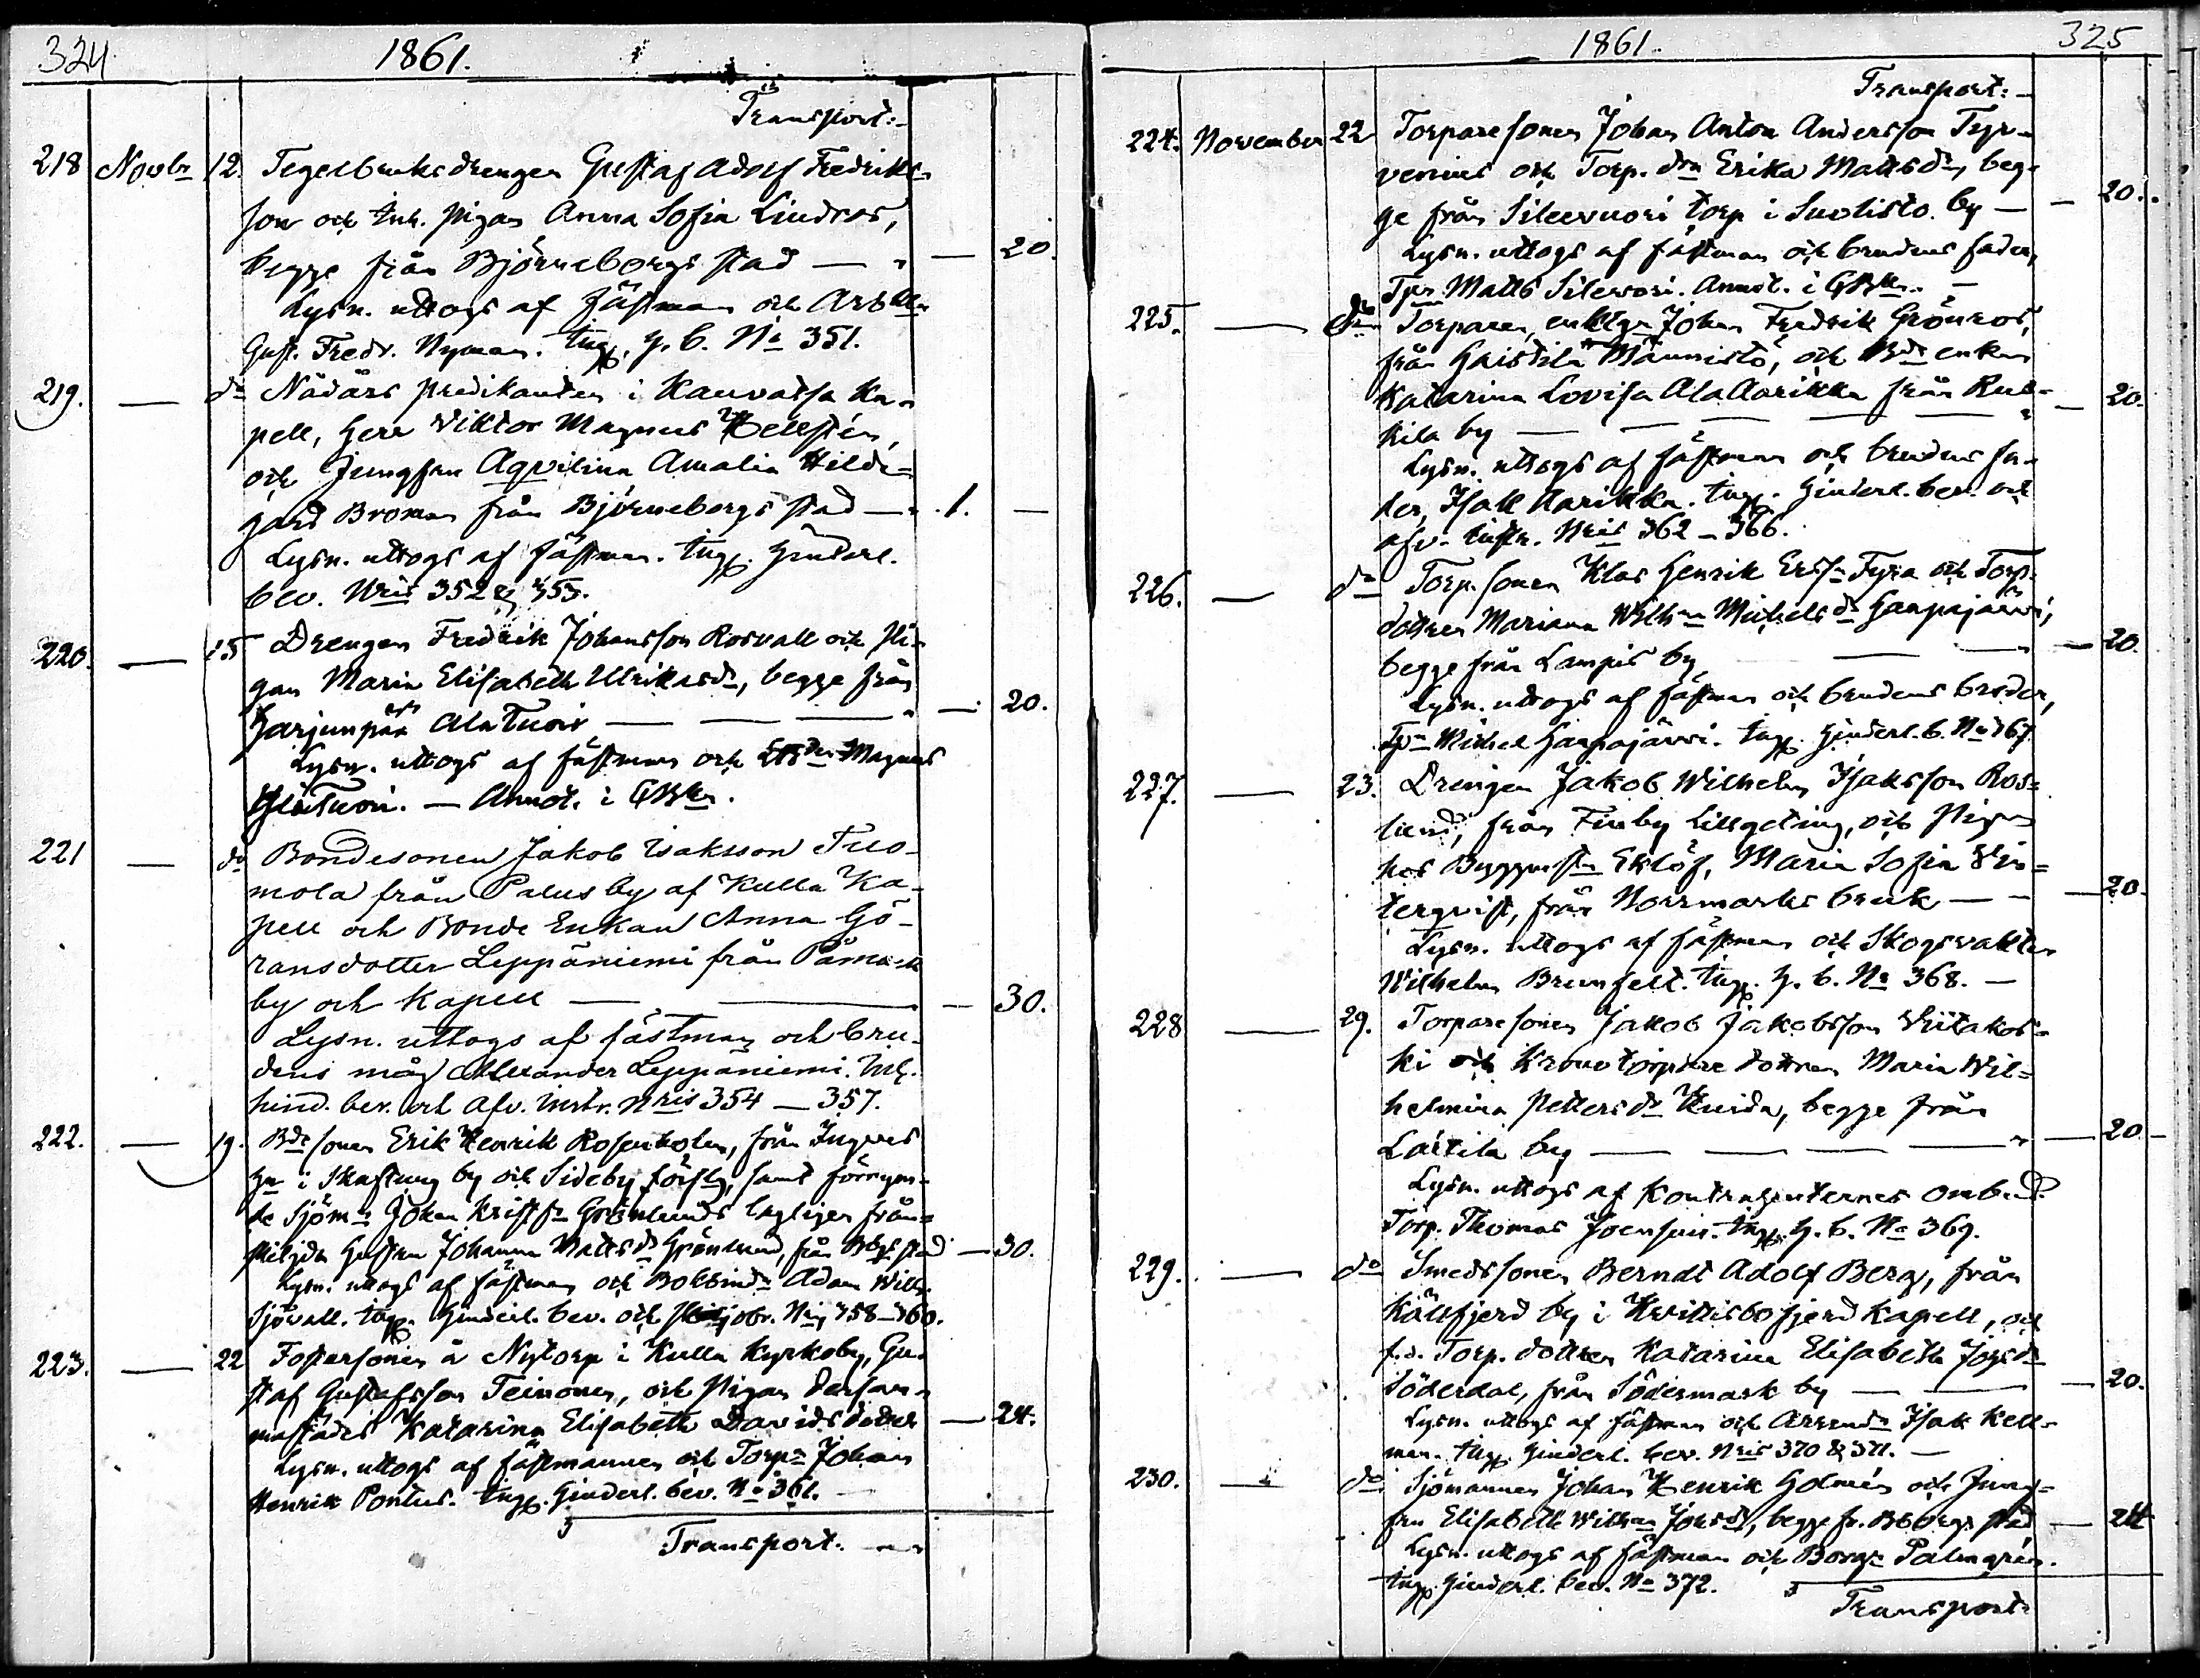 324
1861.
Transport:
218 Novbr 12. Tegelbruksdrengen Gustaf Adolf Fredriks-
son och Inh. pigan Anna Sofia Lindros,
begge från Björneborgs stad — 20.
Lysn. uttogs af fästman och
Gust. Fredr. Nyman. Ingg. h. b. No 351.
219. — do Nådårs predikanten i Kauvatsa Ka-
pell, Herr Viktor Magnus Hellstén,
och Jungfrun Aqvilina Amalia Hilde-
gard Broman från Björneborgs stad — 1. —
Lysn. uttogs af fästman. Ingg. hinderl.
bev. Nris 352 & 353.
220. — 15 Drengen Fredrik Johansson Rosvall och Pi-
gan Maria Elisabeth Ulriksdr, begge från
Harjunpää Ala Tuori — 20.
Lysn. uttogs af fästman och Magnus
AlaTuori. — Annot. i GBkn.
221 — do Bondesonen Jakob Isaksson Tuo-
mola från Palus by af Kulla Ka-
pell och Bonde Enkan Anna Gö-
ransdotter Leppäniemi från Påmark
by och Kapell — 30.
Lysn. uttogs af fästman och bru-
dens måg Alexander Leppäniemi. Ing.
hind. bev. och afv. instr. Nris 354 — 357.
222. — 19. Bdesonen Erik Henrik Rosenholm, från Ingves
hn i Skaftung by och Sideby förslg, samt förrym-
de Sjöm:s Johan Kristfr Grönlunds lagligen från-
skiljda hustru Johanna Mattsdr Grönlund, från Bbgs stad — 30.
Lysn. uttogs af fästman och Bokbindr Adam Wilh.
Sjövall. Ingg. hinderl. bev. och Nris 358–360.
223. — 22 Fostersonen å Nytorp i Kulla Kyrkoby, Gu-
staf Gustafsson Teinonen, och Pigan dersam-
mastädes Katarina Elisabeth Davidsdotter — 24.
Lysn. uttogs af fästmannen och Torpn Johan
Henrik Pontus. Ingg. hinderl. bev. No 361.
Transport.
1861.
325
Transport:
224. November 22 Torparesonen Johan Anton Andersson Tyr-
venius och Torp. drn Erika Mattsdr, beg-
ge från Silevuori torp i Suolisto by — 20.
Lysn. uttogs af fästman och brudens fader,
Tpr. Matts Silevori. Annot. i GBkn. —
225. — do Torparen, enkl. Johan Fredrik Grönroos,
från Haistila Männistö, och Bde enkan
Katarina Lovisa AlaAarikka från Rus-
kila by — 20.
Lysn. uttogs af fästman och brudens fa-
der, Isak Aarikka. Ingg. hinderl. bev. och
afv. instr. Nris 362 – 366.
226. — do Torp. sonen Klas Henrik Ersson Tyra och Torp.
dottren Mariana Wilhna Mickelsdr Haapajärvi,
begge från Lampis by — 20.
Lysn. uttogs af fästman och brudens broder,
Tpn Michel Haapajärvi. Ingg. hinderl. b. No 367
227. — 23. Drengen Jakob Wilhelm Isaksson Ros-
lund, från Finby Lillgeting, och Pigan
hos Byggmstn Eklöf, Maria Sofia Win-
terqvist, från Norrmarks bruk — 20.
Lysn. uttogs af fästman och Skogsvakten
Wilhelm Brunfelt. Ingg. h. b. No 368. —
228 — 29. Torparesonen Jakob Jakobsson Viitakos-
ki och Kronotorpare dottren Maria Wil-
helmina Pettersdr Kuida, begge från
Laitila by — 20
Lysn. uttogs af Kontrahenternes ombud
Torp. Thomas Joensuu. Ingg. h. b. No 369.
229. — do Smedssonen Berndt Adolf Berg, från
Källfjerd by i Hvittisbofjerd Kapell, och
f.d. Torp. dottren Katarina Elisabeth Jörsdr
Söderdal, från Södermark by — 20.
Lysn. uttogs af fästman och Arrendn Isak Kell-
man. Ingg. hinderl. bev. Nris 370 & 371. —
230. — do Sjömannen Johan Henrik Holmén och Jung-
frun Elisabeth Wilhna Johsdr, begge fr. Bborgs stad — 24
Lysn. uttogs af fästman och Borgn Palmgren.
Ingg. hinderl. bev. No 372.
Transport: